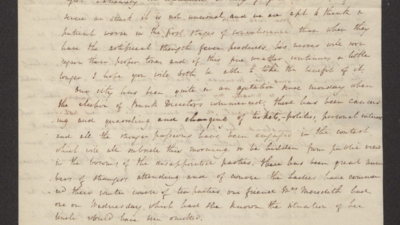 it is not unusual, and we are apt to think a
patient worse in the first stages of convalescence than when they
have the artificial strength fever produces, his nerves will now
regain their proper tone and if this fine weather continues a little
longer I hope you will both be able to take the benefit of it.
Our city has been quite in an agitated since monday when
the election of Bank Directors commenced, there has been canvas
ing and quarreling and changing of tickets, politics, personal
and all the stronger passions have been engaged in the contest
which will all subside this morning, or be hidden from public view
in the of the disappointed parties. There has been great num
bers of strangers attending and of course the Ladies have commen
ced their winter course of tea parties, our friend Mrs. Meredith had
one on Wednesday which had she known the situation of her
would have been omitted.